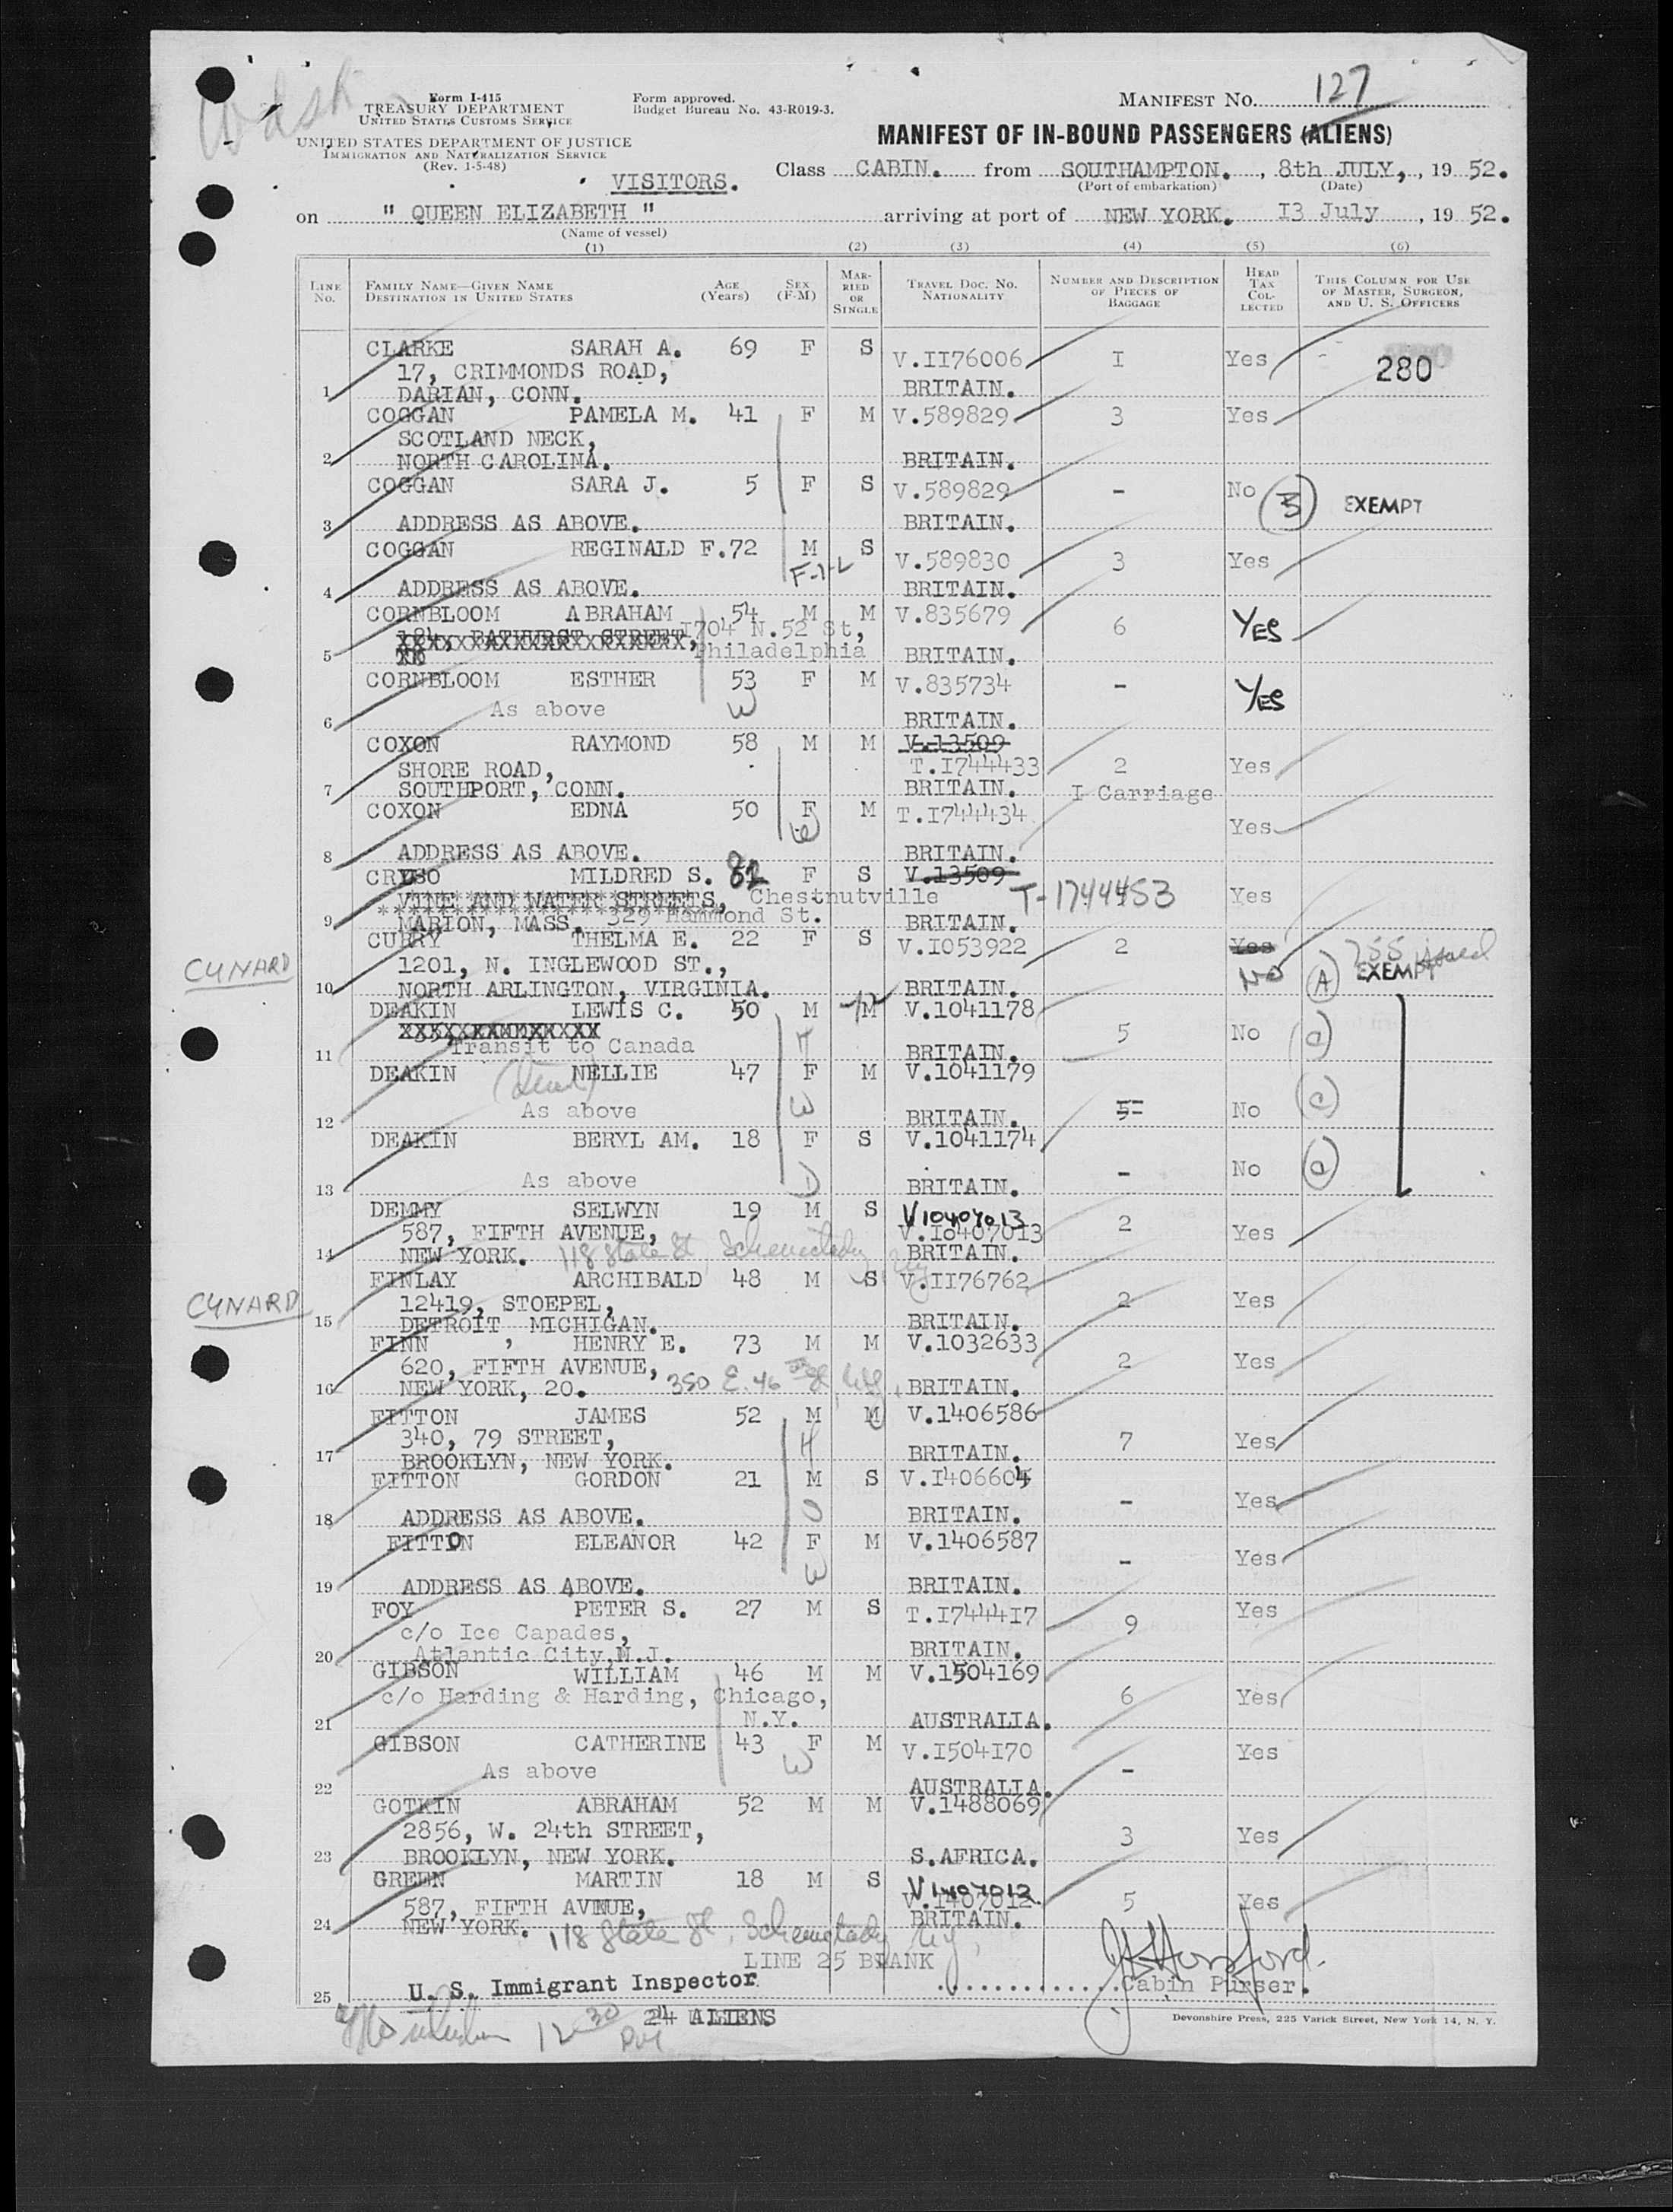 Wash
Form I-415
TREASURY DEPARTMENT
UNITED STATES CUSTOMS SERVICE
UNITED STATES DEPARTMENT OF JUSTICE
IMMIGRATION AND NATURALIZATION SERVICE
(Rev. 1-5-48)
Form approved.
Budget Bureau No. 43-R019-3.
MANIFEST NO. 127
MANIFEST OF IN-BOUND PASSENGERS (ALIENS)
VISITORS.
Class CABIN. from SOUTHAMPTON. , 8th JULY, , 19 52.
(Port of embarkation) (Date)
on " QUEEN ELIZABETH " arriving at port of NEW YORK. I3 July , 19 52.
(Name of vessel)
(1) (2) (3) (4) (5) (6)
LINE No. FAMILY NAME—GIVEN NAME DESTINATION IN UNITED STATES AGE (Years) SEX (F-M) MARRIED OR SINGLE TRAVEL DOC. NO. NATIONALITY NUMBER AND DESCRIPTION OF PIECES OF BAGGAGE HEAD TAX COLLECTED THIS COLUMN FOR USE OF MASTER, SURGEON, AND U. S. OFFICERS
CLARKE SARAH A. 69 F S V.II76006 I Yes 280
17, CRIMMONDS ROAD,
1 DARIAN, CONN. BRITAIN.
COGGAN PAMELA M. 41 F M V.589829 3 Yes
SCOTLAND NECK,
2 NORTH CAROLINA. BRITAIN.
COGGAN SARA J. 5 F S V.589829 - No EXEMPT
3 ADDRESS AS ABOVE. BRITAIN.
COGGAN REGINALD F. 72 M S V.589830 3 Yes
F-1-L
4 ADDRESS AS ABOVE. BRITAIN.
CORNBLOOM ABRAHAM 54 M M V.835679 6 YES
184, BATHURST STREET, I704 N.52 St,
5 Philadelphia BRITAIN.
CORNBLOOM ESTHER 53 F M V.835734 - YES
As above W
6 BRITAIN.
COXON RAYMOND 58 M M V.13509
SHORE ROAD, T.I744433 2 Yes
7 SOUTHPORT, CONN. BRITAIN. I Carriage
COXON EDNA 50 F M T.I744434 Yes
W
8 ADDRESS AS ABOVE. BRITAIN.
MILDRED S. F S V.13509
VINE AND WATER STREETS, Chestnutville T-1744453 Yes
9 MARION, MASS. 329 Hammond St. BRITAIN.
CURRY THELMA E. 22 F S V.I053922 2 Yes
CUNARD 1201, N. INGLEWOOD ST., NO (A) EXEMPT
10 NORTH ARLINGTON, VIRGINIA. BRITAIN.
DEAKIN LEWIS C. 50 M M V.1041178 5 No
H
11 Transit to Canada BRITAIN.
DEAKIN NELLIE 47 F M V.1041179
As above W 5- No
12 BRITAIN.
DEAKIN BERYL AM. 18 F S V.1041174 - No
13 As above D BRITAIN.
DEMMY SELWYN 19 M S V10407013
587, FIFTH AVENUE, V.I0407013 2 Yes
14 NEW YORK. 118 State St, Schenectady NY BRITAIN.
FINLAY ARCHIBALD 48 M S V.II76762
CUNARD 12419, STOEPEL, 2 Yes
15 DETROIT MICHIGAN. BRITAIN.
FINN , HENRY E. 73 M M V.1032633
620, FIFTH AVENUE, 2 Yes
16 NEW YORK, 20. 350 E. 46 St BRITAIN.
FITTON JAMES 52 M M V.1406586
340, 79 STREET, H 7 Yes
17 BROOKLYN, NEW YORK. BRITAIN.
FITTON GORDON 21 M S V.I406604 - Yes
18 ADDRESS AS ABOVE. BRITAIN.
FITTON ELEANOR 42 F M V.1406587 - Yes
W
19 ADDRESS AS ABOVE. BRITAIN.
FOY PETER S. 27 M S T.I7444I7 9 Yes
c/o Ice Capades,
20 Atlantic City,N.J. BRITAIN.
GIBSON WILLIAM 46 M M V.1504169
c/o Harding & Harding, Chicago, 6 Yes
21 N.Y. AUSTRALIA.
GIBSON CATHERINE 43 F M V.I504I70 Yes
As above W -
22 AUSTRALIA.
GOTKIN ABRAHAM 52 M M V.1488069
2856, W. 24th STREET, 3 Yes
23 BROOKLYN, NEW YORK. S.AFRICA.
GREEN MARTIN 18 M S V1407012
587, FIFTH AVENUE, V.I407012 5 Yes
24 NEW YORK. 118 State St, Schenectady NY, BRITAIN.
LINE 25 BLANK
25 U. S. Immigrant Inspector Cabin Purser.
24 ALIENS 12 30 PM
Devonshire Press, 225 Varick Street, New York 14, N. Y.